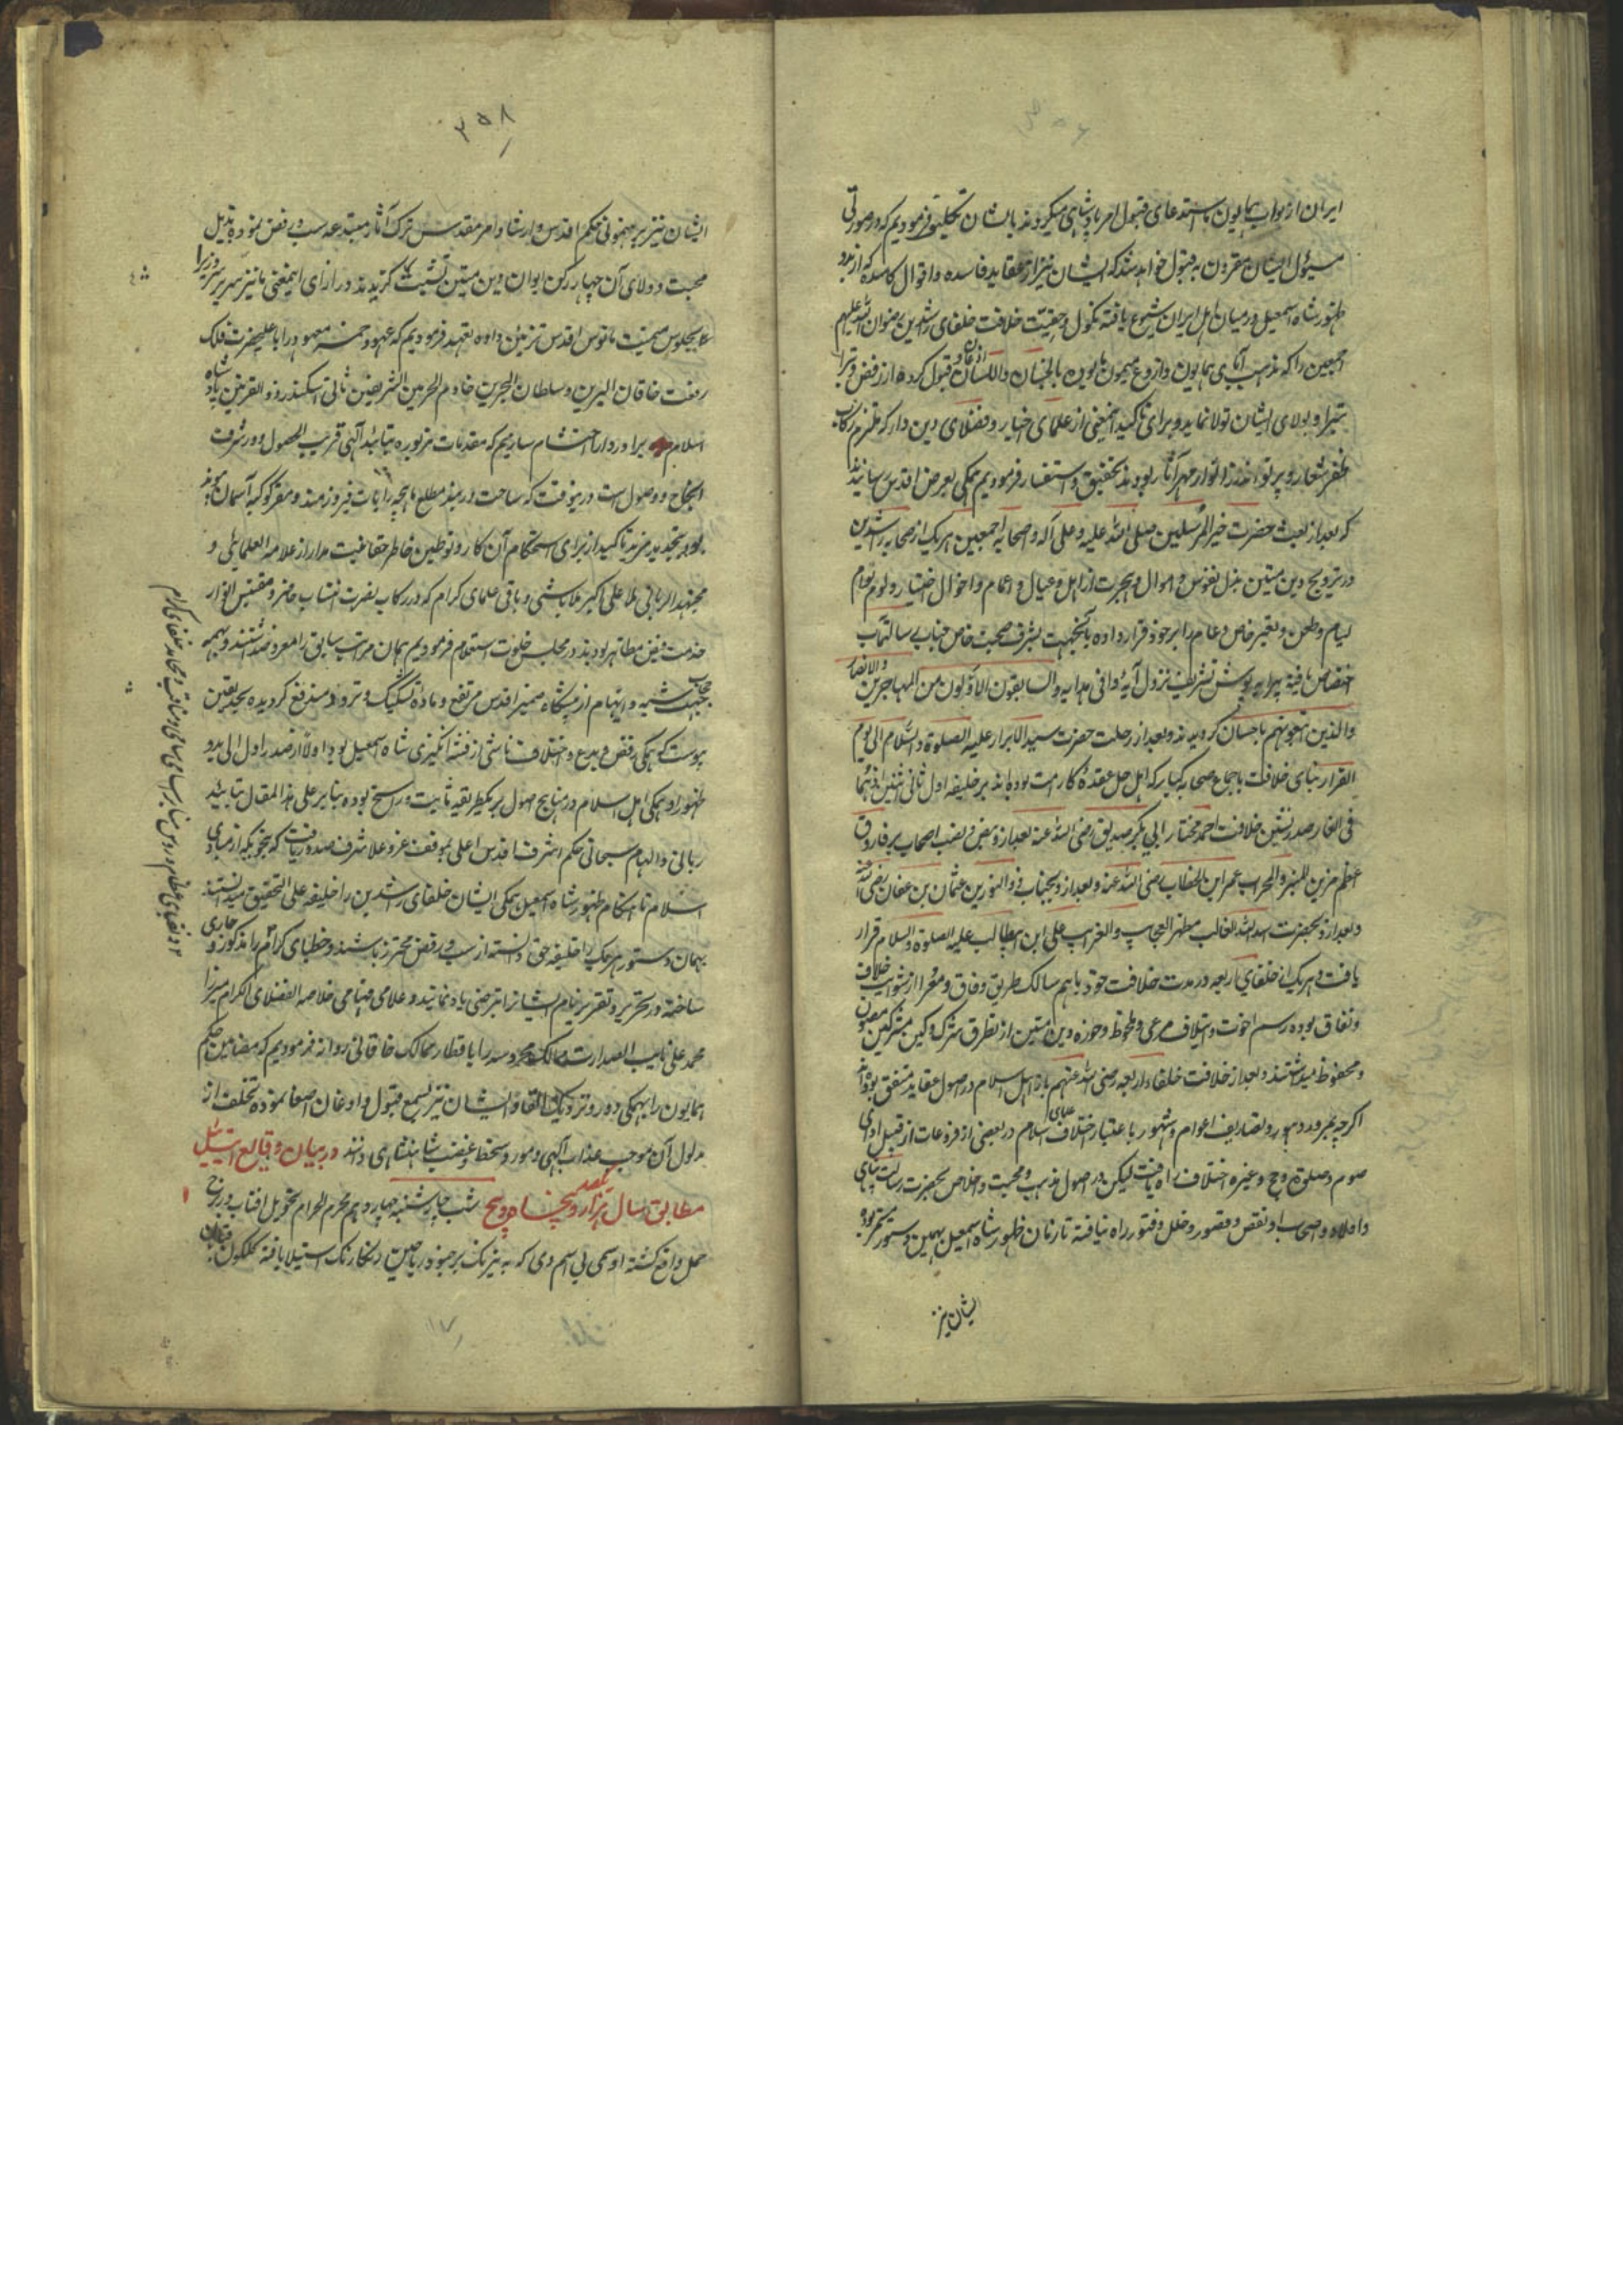 ایران از نواب همایون باستدعای قبول امر پادشاهی میکردند بایشان تکلیف فرمودیم که در صورتی
مسئول ایشان مقرون به قبول خواهد شد که ایشان نیز از عقاید فاسده و اقوال کاسده که از بدو
ظهور شاه اسمعیل در میان اهل ایران شیوع یافته نکول و حقیت خلافت خلفای راشدین رضوان الله علیهم
اجمعین را که مذهب آبای همایون و اروغ میمون ماست بالجنان و اللسان اذعان و قبول کرده از رفض و تبرا
تبرا و بولای ایشان تولا نمایند و برای تاکید اینمعنی از علمای اخیار و فضلای دین دار که ملتزم رکاب
ظفر شعار و پرتو اندوز انوار مهر آثار بودند تحقیق و استفسار فرمودیم همگی بعرض اقدس رسانیدند
که بعد از بعثت حضرت خیر المرسلین صلی الله علیه و علی آله و اصحابه اجمعین هر یک از صحابه راشدین
در ترویج دین متین بذل نفوس و اموال و هجرت از اهل و عیال و اعمام و اخوال اختیار و لوم لوام
لیام و طعن و تعییر خاص و عام را بر خود قرار داده باینجهت بشرف صحبت خاص جناب رسالتمآب
اختصاص یافته پیرایه پوش تشریف نزول آیهٔ وافی هدایه والسابقون الاولون من المهاجرین والانصار
والذین اتبعوهم باحسان گردیدند و بعد از رحلت حضرت سید الابرار علیه الصلوة والسلام الی یوم
القرار بنای خلافت باجماع صحابه کبار که اهل حل عقدهٔ کار امت بوده اند بر خلیفه اول ثانی اثنین اذ هما
فی الغار صدرنشین خلافت احمد مختار ابی بکر صدیق رضی الله عنه بعد از و بنص و نصب اصحاب بر فاروق
اعظم مزین المنبر والمحراب عمر ابن الخطاب رضی الله عنه و بعد از و بجناب ذوالنورین عثمان بن عفان رضی الله عنه
و بعد از و بحضرت اسد الله الغالب مظهر العجایب والغرایب علی ابن ابیطالب علیه الصلوة والسلام قرار
یافت و هر یک از خلفای اربعه در مدت خلافت خود با هم سالک طریق وفاق و معرا از شوایب خلاف
و نفاق بوده رسم اخوت و ایتلاف مرعی و ملحوظ و حوزه دین متین از تطرق شرک و کین مشرکین مصون
و محفوظ میداشتند و بعد از خلافت خلفاء اربعه رضی الله عنهم باز اهل اسلام در اصول عقاید متفق بوده اند
اگرچه بمرور دهور و تصاریف اعوام و شهور باعتبار اختلاف علمای اسلام در بعضی از فروعات از قبیل ادای
صوم و صلوة و حج و غیره اختلاف راه یافت لیکن در اصول مذهب و محبت و اخلاص بحضرت رسالت پناهی
و اولاد و اصحاب او نقص و قصور و خلل و فتور راه نیافته تا زمان ظهور شاه اسمعیل بهمین دستور مستمر بود
ایشان نیز
۲۵۸
ایشان نیز برهنمونی حکم اقدس و ارشاد امر مقدس ترک آثار مبتدعه سب و رفض نموده بذیل
محبت و ولای آن چهار رکن ایوان دین متین تشبث گزیدند در ازای اینمعنی ما نیز سریر سروری را
بجلوس میمنت مانوس اقدس تزیین داده تعهد فرمودیم که عهود خمسه معهوده را باعلیحضرت فلک
رفعت خاقان البرین و سلطان البحرین خادم الحرمین الشریفین ثانی اسکندر ذوالقرنین پادشاه
اسلام برادر دارا احتشام سازیم که مقدمات مزبوره بتائید الهی قریب الحصول و در شرف
انجاح و وصول است درینوقت که ساحت در بند مطلع ماهچه رایات فیروزمند و مقر کوکبه آسمان پیوند
بود بتجدید مزید تاکید از برای استحکام آن کار و توطین خاطر حقانیت مدار از علامه العلمایی و
مجتهد الزمانی ملا علی اکبر ملاباشی و باقی علمای کرام که در رکاب نصرت انتساب حاضر و مقتبس انوار
خدمت فیض مظاهر بودند در مجلس خلوت استعلام فرمودیم همان مراتب سابق را معروضداشتند و بهمه
جهت حجاب شبهه و ابهام از پیشگاه ضمیر اقدس مرتفع و ماده تشکیک و تردد مندفع گردیده بحد یقین
پیوست که همگی رفض و بدع و اختلاف ناشی از فتنه انگیزی شاه اسمعیل بود والا از صدر اول الی بدو
ظهور او همگی اهل اسلام در مناهج اصول بر یکطریقه ثابت و راسخ بوده بنابر علی هذا المقال بتائید
ربانی و الهام سبحانی حکم اشرف اقدس اعلی بموقف عز و علا شرف صدور یافت که بنحویکه از مبادی
اسلام تا هنگام ظهور شاه اسمعیل همگی ایشان خلفای راشدین را خلیفه علی التحقیق میدانستند
بهمان دستور هر یک را خلیفه حق دانسته از سب و رفض محترز باشند و خطبای کرام را مذکور و جاری
ساخته در تحریر و تقریر نام ایشانرا بترضی یاد نمایند و علامی فهامی خلاصه الفضلای الکرام میرزا
محمد علی نایب الصدارت ممالک محروسه را باقطار ممالک خاقانی روانه فرمودیم که مضامین حکم
همایون را بهمگی دور و نزدیک القا و ایشان نیز بسمع قبول و اذعان اصغا نموده تخلف از
مدلول آن موجب عذاب الهی و مورد سخط و غضب شاهنشاهی دانند در بیان وقایع ایت ئیل
مطابق سال هزار و یکصد و پنجاه و پنج شب چهارشنبه چهاردهم محرم الحرام تحویل آفتاب در برج
حمل واقع گشته